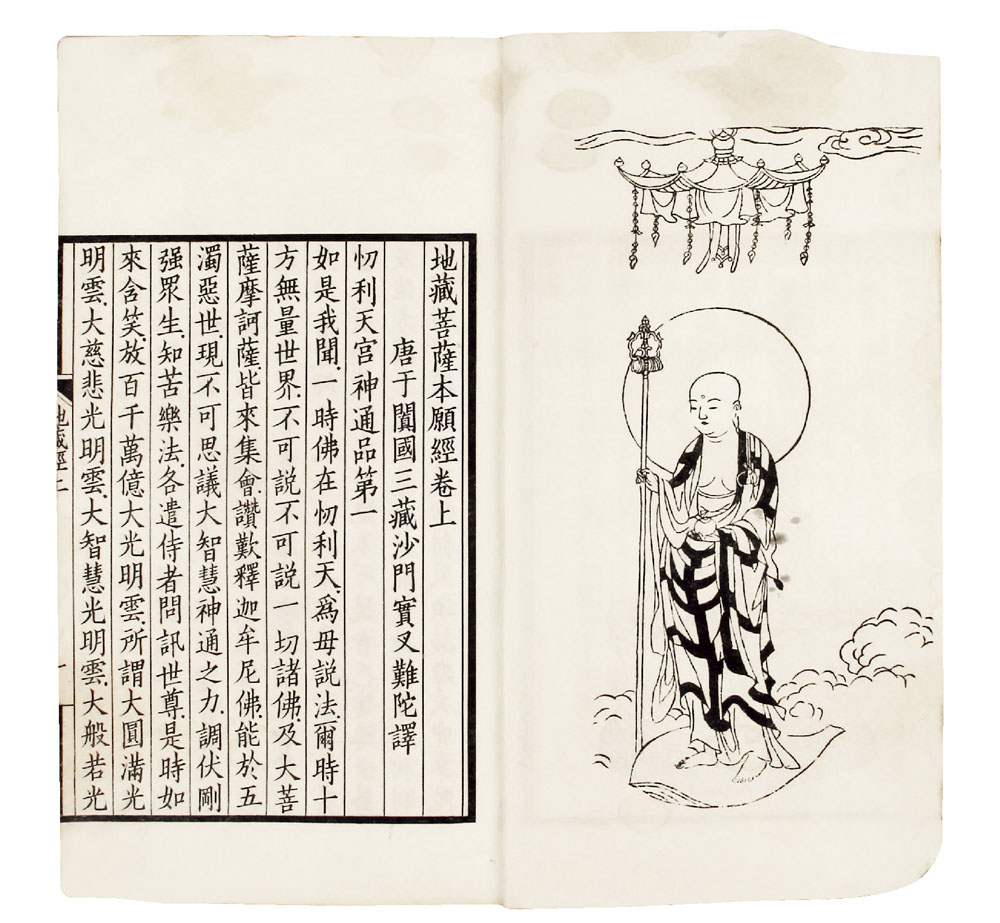 地藏菩薩本願經卷上
唐于闐國三藏沙門實叉難陀譯
忉利天宮神通品第一
如是我聞.一時佛在忉利天.爲母説法.爾時十
方無量世界.不可説不可説一切諸佛.及大菩
薩摩訶薩皆來集會.讚歎釋迦牟尼佛.能於五
濁惡世.現不可思議大智慧神通之力.調伏剛
强眾生.知苦樂法.各遣侍者問訊世尊.是時如
來含笑.放百千萬億大光明雲.所謂大圓滿光
明雲.大慈悲光明雲.大智慧光明雲.大般若光
地藏經上